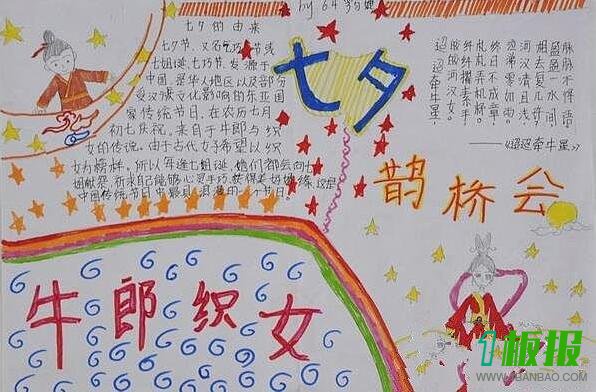 by 64
七夕的由来
七夕节,又名乞巧节或
七姐诞,七巧节发源于
中国,是华人地区以及部分
受汉族文化影响的东亚国
家传统节日,在农历七月
初七庆祝,来自于牛郎与织
女的传说,由于古代女子希望以织
女为榜样,所以每逢七姐诞,她们都会向七
姐献祭,祈求自己能够心灵手巧,获得美好姻缘,这是
中国传统节日中最具浪漫的一个节日。
七夕
迢迢牵牛星,
皎皎河汉女。
纤纤擢素手,
札札弄机杼。
终日不成章,
泣涕零如雨。
河汉清且浅,
相去复几许
盈盈一水间
脉脉不得语
——《迢迢牵牛星》
鹊桥会
牛郎织女
1板报
WWW.1BANBAO.COM